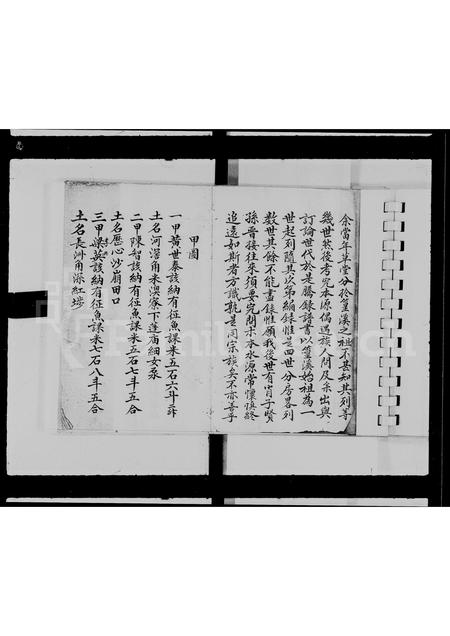 余當年草堂分於篁溪之祖不甚知其列等
幾世然後考究本源偶遇族人問及系出與
訂論世代於是騰錄譜書以篁溪始祖為一
世起列隨其次第編錄惟是四世分房畧列
數世其餘不能盡錄惟願我後世有肖子賢
孫晉接往來須要究問木本水源常懷慎終
追遠如斯者方識孰是同宗族矣不亦善乎
甲圖
一甲黃世泰該納有征魚課米五石六斗三
土名河滘角禾深寮下蓬庙細女氹
二甲陳智該納有征魚課米五石七斗五合
土名歷心沙崩田口
三甲梁英該納有征魚課米七石八斗五合
土名長洲角深紅